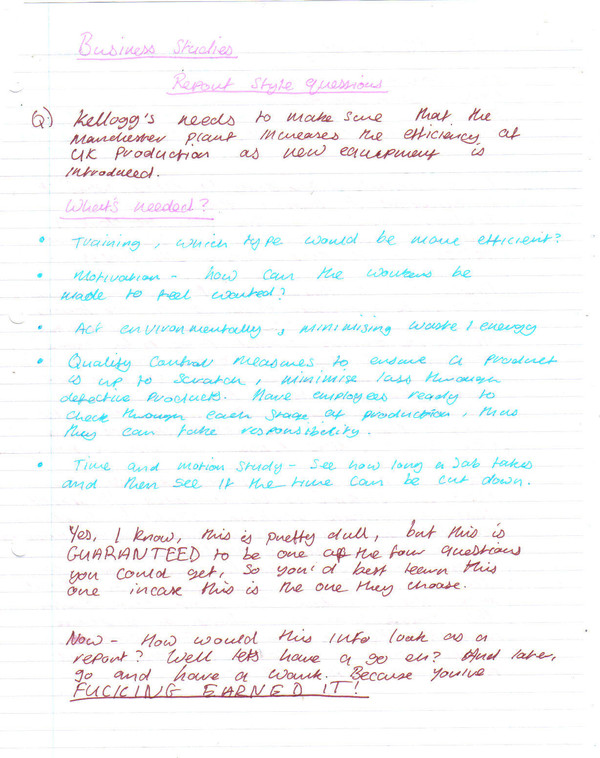 Business Studies
Report Style questions
Q:) Kellogg's needs to make sure that the
Manchester plant increases the efficiency of
UK production as new equipment is
introduced.
What's needed?
• Training, which type would be more efficient?
• Motivation - how can the workers be
made to feel wanted?
• Act environmentally, minimising waste / energy
• Quality Control measures to ensure a product
is up to scratch, minimise loss through
defective products. Have employees ready to
check through each stage of production, thus
they can take responsibility.
• Time and motion study - see how long a job takes
and then see if the time can be cut down.
Yes, I know, this is pretty dull, but this is
GUARANTEED to be one of the four questions
you could get, so you'd best learn this
one incase this is the one they choose.
Now - How would this info look as a
report? Well lets have a go eh? And later,
go and have a wank. Because you've
FUCKING EARNED IT!